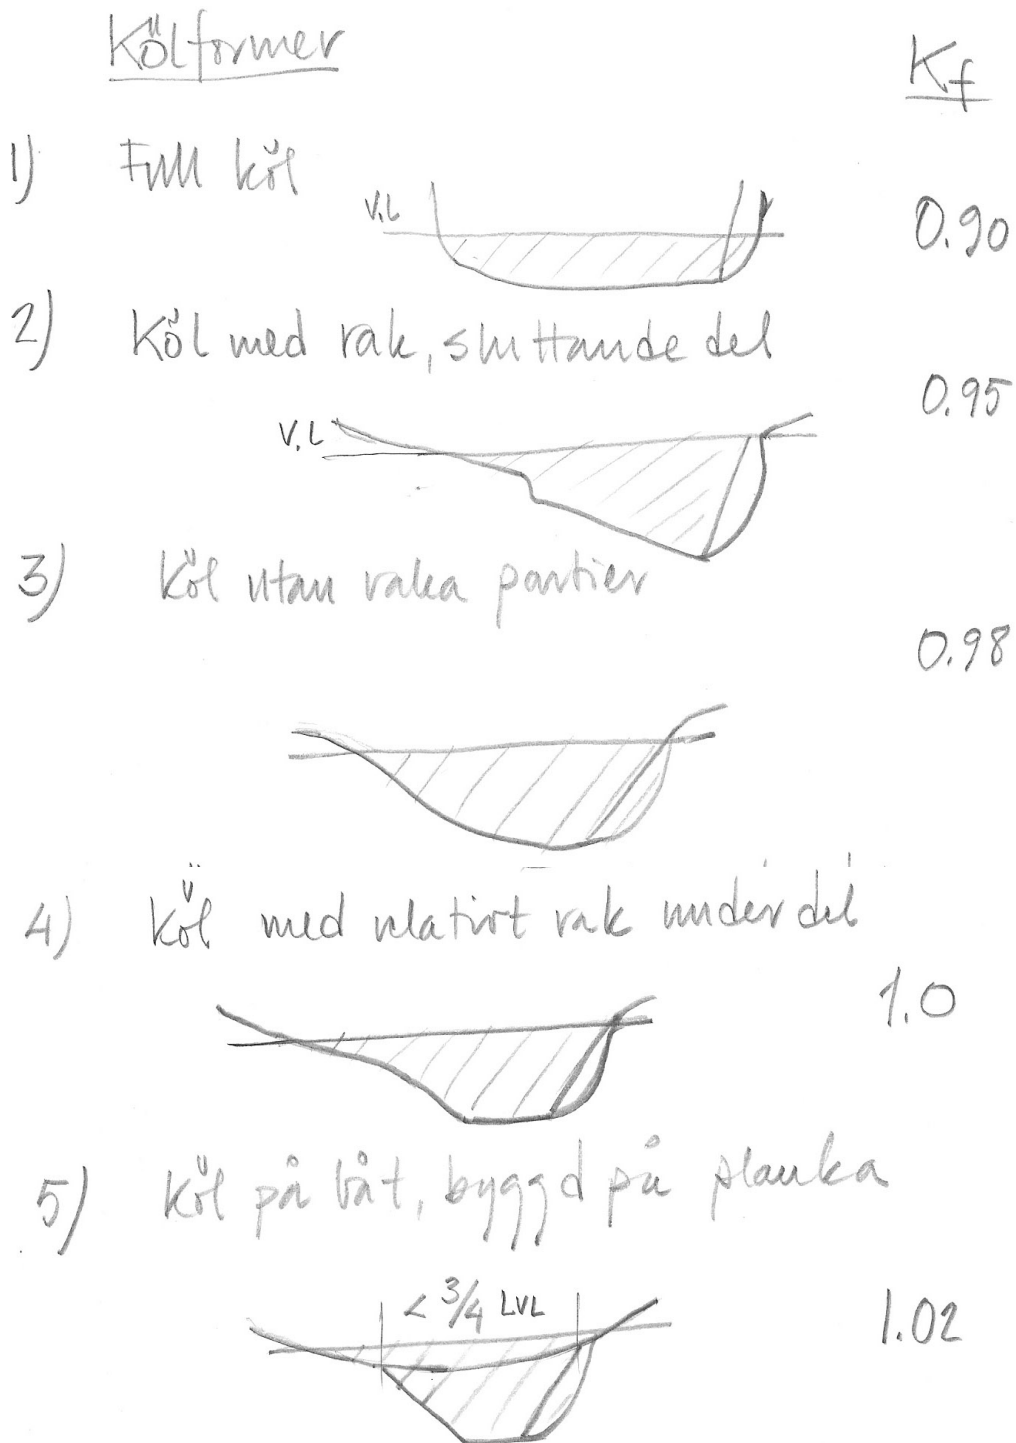 Kölformer
Kf
1) Full köl
V.L
0.90
2) Köl med rak, sluttande del
0.95
V.L
3) Köl utan raka partier
0.98
4) Köl med relativt rak underdel
1.0
5) Köl på båt, byggd på planka
< 3/4 LVL
1.02